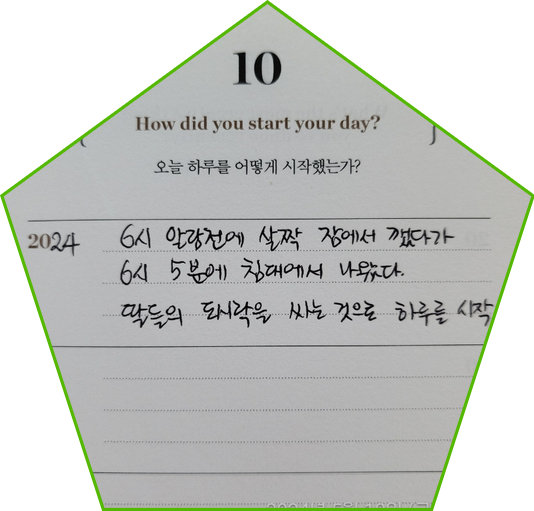 10
How did you start your day?
오늘 하루를 어떻게 시작했는가?
2024 6시 알람전에 살짝 잠에서 깼다가
6시 5분에 침대에서 나왔다.
딸들의 도시락을 싸는 것으로 하루를 시작